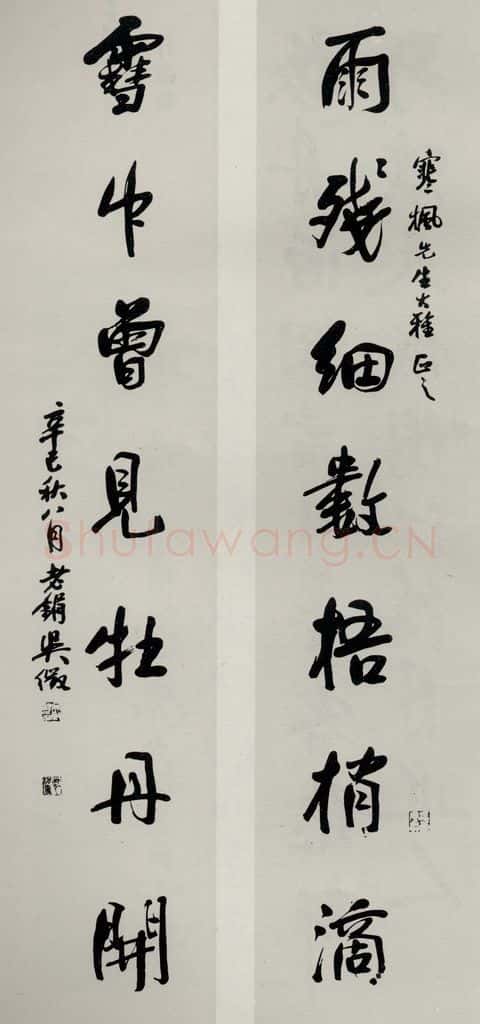 寒楓先生大雅正之
雨殘細數梧梢滴
雪中曾見牡丹開
辛巳秋八月老鋗吳徵
Shufawang.CN